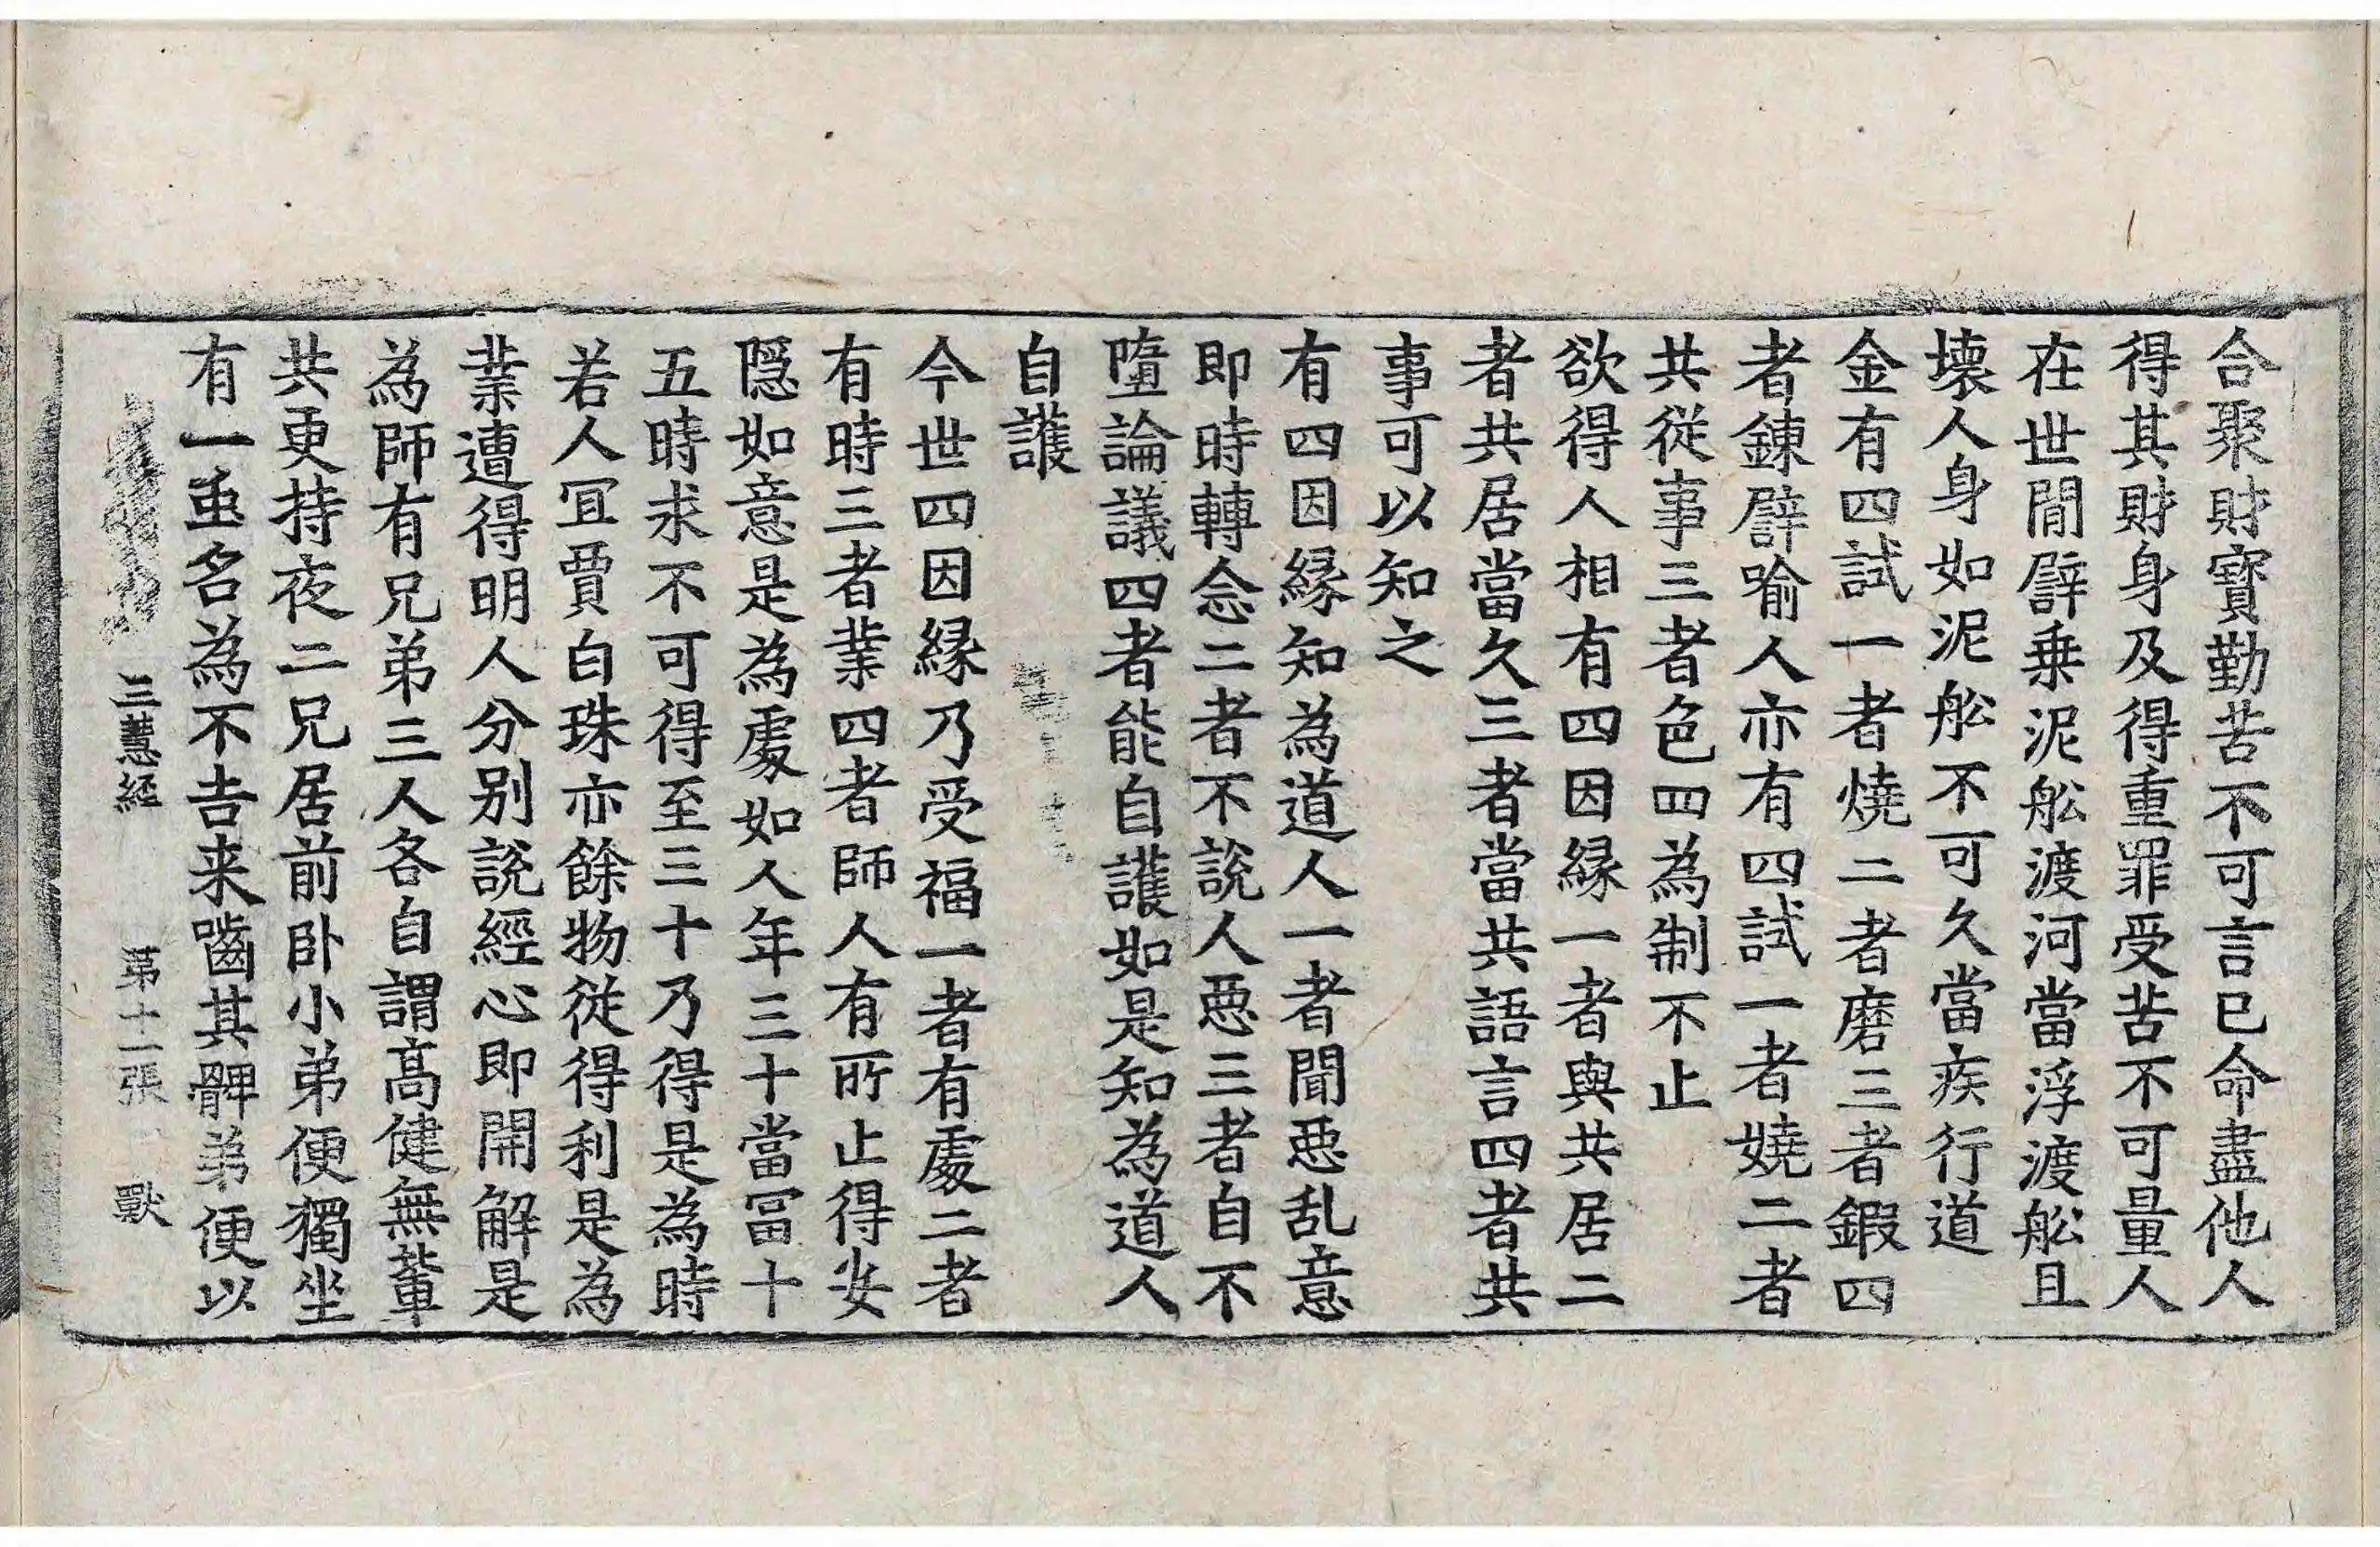 合聚財寶勤苦不可言已命盡他人
得其財身及得重罪受苦不可量人
在世間辟乗泥舩渡河當浮渡舩且
壊人身如泥舩不可久當疾行道
金有四試一者燒二者磨三者鍜四
者鍊辟喻人亦有四試一者嬈二者
共従事三者色四為制不止
欲得人相有四因縁一者與共居二
者共居當久三者當共語言四者共
事可以知之
有四因縁知為道人一者聞惡乱意
即時轉念二者不說人惡三者自不
墮論議四者能自護如是知為道人
自護
今世四因縁乃受福一者有處二者
有時三者業四者師人有所止得安
隱如意是為處如人年三十當冨十
五時求不可得至三十乃得是為時
若人冝賈白珠亦餘物従得利是為
業遭得明人分别說經心即開解是
為師有兄弟三人各自謂高健無輩
共更持夜二兄居前卧小弟便獨坐
有一䖝名為不吉来嚙其髀弟便以
三慧経 第十二張 獸